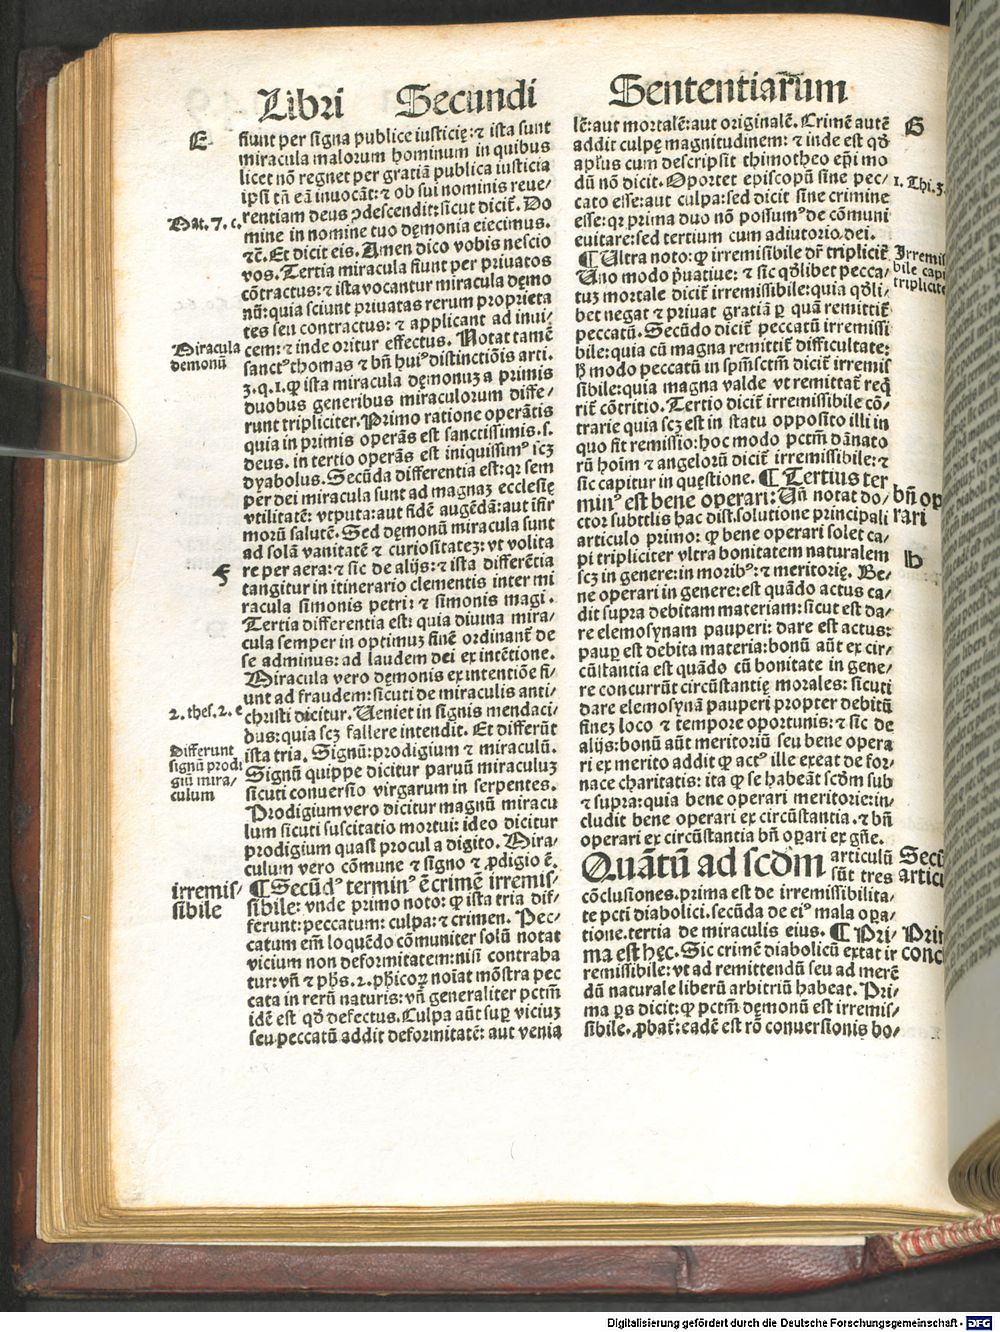 Libri Secundi Sententiarum
E
fiunt per signa publice iusticię: ⁊ ista sunt
miracula malorum hominum in quibus
licet nō regnet per gratiā publica iusticia
ipsi tñ eā inuocāt: ⁊ ob sui nominis reue/
rentiam deus ꝯdescendit: sicut dicit̃. Do
Mat. 7. c.
mine in nomine tuo dęmonia eiecimus.
⁊c̄. Et dicit eis. Amen dico vobis nescio
vos. Tertia miracula fiunt per priuatos
cōtractus: ⁊ ista vocantur miracula dęmo
nū: quia sciunt priuatas rerum proprieta
tes seu contractus: ⁊ applicant ad inui/
Miracula
demonū
cem: ⁊ inde oritur effectus. Notat tamē
sanctꝰ thomas ⁊ bñ huiꝰ distinctiōis arti.
3. q. 1. ꝙ ista miracula dęmonuꝫ a primis
duobus generibus miraculorum diffe/
runt tripliciter. Primo ratione operātis
quia in primis operās est sanctissimis. s.
deus. in tertio operās est iniquissimꝰ scꝫ
dyabolus. Secūda differentia est: qꝛ sem
per dei miracula sunt ad magnaꝫ ecclesię
vtilitatē: vtputa: aut fidē augēdā: aut ifir
morū salutē. Sed dęmonū miracula sunt
ad solā vanitatē ⁊ curiositateꝫ: vt volita
F
re per aera: ⁊ sic de alijs: ⁊ ista differētia
tangitur in itinerario clementis inter mi
racula simonis petri: ⁊ simonis magi.
Tertia differentia est: quia diuina mira/
cula semper in optimuꝫ finē ordinant̃ de
se adminus: ad laudem dei ex intētione.
Miracula vero dęmonis ex intentiōe fi/
unt ad fraudem: sicuti de miraculis anti/
2. thes. 2. e
christi dicitur. Ueniet in signis mendaci/
bus: quia scꝫ fallere intendit. Et differūt
Differunt
signū prodi
giū mira/
culum
ista tria. Signū: prodigium ⁊ miraculū.
Signū quippe dicitur paruū miraculuꝫ
sicuti conuersio virgarum in serpentes.
Prodigium vero dicitur magnū miracu
lum sicuti suscitatio mortui: ideo dicitur
prodigium quasi procul a digito. Mira/
culum vero cōmune ⁊ signo ⁊ ꝓdigio ē.
irremis/
sibile
¶ Secūdꝰ terminꝰ ē crimē irremis/
sibile: vnde primo noto: ꝙ ista tria dif/
ferunt: peccatum: culpa: ⁊ crimen. Pec/
catum em̄ loquēdo cōmuniter solū notat
vicium non deformitatem: nisi contraba
tur: vñ ⁊ phs. 2. phicoꝝ noīat mōstra pec
cata in rerū naturis: vñ generaliter pctm̄
idē est qđ defectus. Culpa aūt suꝑ viciuꝫ
seu peccatū addit deformitatē: aut venia
lē: aut mortalē: aut originalē. Crimē autē
G
addit culpę magnitudinem: ⁊ inde est qđ
apl̃us cum descripsit thimotheo ep̃i mo
dū nō dicit. Oportet episcopū sine pec/
1. Thi. 3.
cato esse: aut culpa: sed dicit sine crimine
esse: qꝛ prima duo nō possumꝰ de cōmuni
euitare: sed tertium cum adiutorio dei.
Irremis
bile capi
triplicite
¶ Ultra noto: ꝙ irremisibile dr̃ triplicit̃
Uno modo p̃uatiue: ⁊ sic qđlibet pecca/
tuꝫ mortale dicit̃ irremissibile: quia qđli/
bet negat ⁊ priuat gratiā ꝑ quā remittit̃
peccatū. Secūdo dicit̃ peccatū irremissi
bile: quia cū magna remittit̃ difficultate:
ꝙ modo peccatū in sp̃m̄sctm̄ dicit̃ irremis
sibile: quia magna valde vt remittat̃ req̃
rit̃ cōtritio. Tertio dicit̃ irremissibile cō/
trarie quia scꝫ est in statu opposito illi in
quo fit remissio: hoc modo pctm̄ dānato
rū hoīm ⁊ angelorū dicit̃ irremissibile: ⁊
sic capitur in questione. ¶ Tertius ter
bñ op
rari
minꝰ est bene operari: Uñ notat do/
ctor subtilis hac dist. solutione principali
articulo primo: ꝙ bene operari solet ca/
H
pi tripliciter vltra bonitatem naturalem
scꝫ in genere: in moribꝰ: ⁊ meritorię. Be/
ne operari in genere: est quādo actus ca/
dit supra debitam materiam: sicut est da/
re elemosynam pauperi: dare est actus:
pauꝑ est debita materia: bonū aūt ex cir/
cūstantia est quādo cū bonitate in gene/
re concurrūt circūstantię morales: sicuti
dare elemosynā pauperi propter debitū
fineꝫ loco ⁊ tempore oportunis: ⁊ sic de
alijs: bonū aūt meritoriū seu bene opera
ri ex merito addit ꝙ actꝰ ille exeat de for/
nace charitatis: ita ꝙ se habeāt scđm sub
⁊ supra: quia bene operari meritorie: in/
cludit bene operari ex circūstantia. ⁊ bñ
operari ex circūstantia bñ oꝑari ex gñe.
Quātū ad scđm articulū
sūt tres
Secū
artici
cōclusiones. prima est de irremissibilita/
te pcti diabolici. secūda de eiꝰ mala oꝑa/
tione. tertia de miraculis eius. ¶ Pri/
Prim
conc
ma est hęc. Sic crimē diabolicū extat ir
remissibile: vt ad remittendū seu ad merē
dū naturale liberū arbitriū habeat. Pri/
ma ꝑs dicit: ꝙ pctm̄ dęmonū est irremis/
sibile. ꝓbat̃: eadē est rō conuersionis bo/
Digitalisierung gefördert durch die Deutsche Forschungsgemeinschaft - DFG